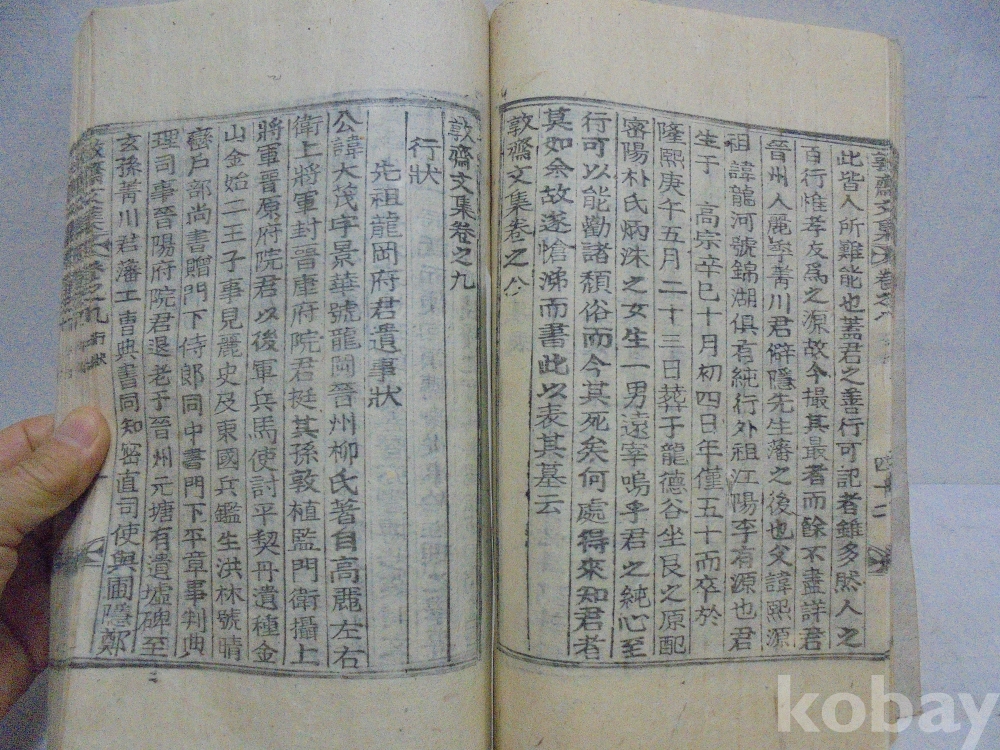 此皆人所難能也蓋君之善行可記者雖多然人之
百行惟孝友爲之源故今撮其最者而餘不盡詳君
晉州人麗季菁川君僻隱先生藩之後也父諱熙源
祖諱龍河號錦湖俱有純行外祖江陽李有源也君
生于 高宗辛巳十月初四日年僅五十而卒於
隆熙庚午五月二十三日葬于龍德谷坐艮之原配
密陽朴氏炳洙之女生一男遠宰嗚乎君之純心至
行可以能勸諸頹俗而今其死矣何處得來知君者
莫如余故遂愴涕而書此以表其墓云
敦齋文集卷之八
敦齋文集卷之九
行狀
先祖龍岡府君遺事狀
公諱大茂字景華號龍岡晉州柳氏著自高麗左右
衛上將軍封晉康府院君挺其孫敦植監門衛攝上
將軍晉原府院君以後軍兵馬使討平契丹遺種金
山金始二王子事見麗史及東國兵鑑生洪林號晴
戶部尚書贈門下侍郞同中書門下平章事判典
理司事晉陽府院君退老于晉州元塘有遺墟碑至
玄孫菁川君藩工曹典書同知密直司使與圃隱鄭
敦齋文集 卷之八
四十二
卷之九 行狀
kobay